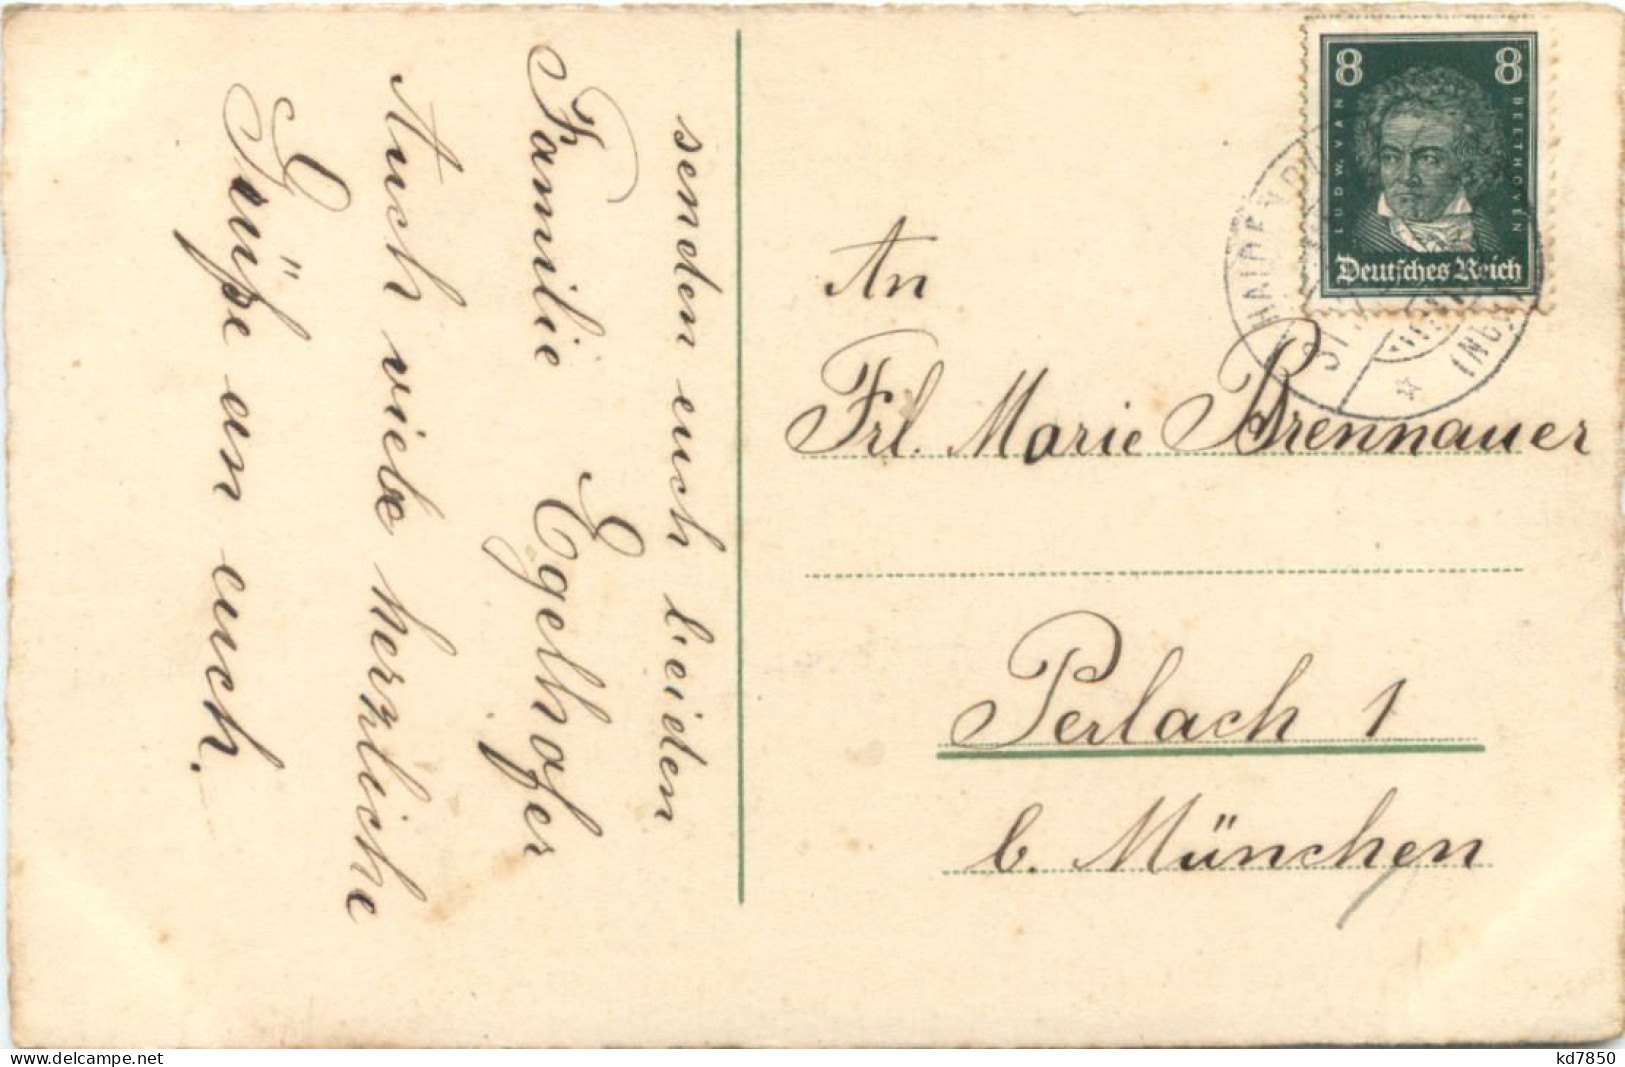 senden euch beiden
Familie Egelhofer
Auch viele herzliche
Grüße an euch.
8 8
LUDW. VAN BEETHOVEN
Deutsches Reich
An
Frl. Marie Brennauer
Perlach 1
b. München
delcampe.net
kd7850